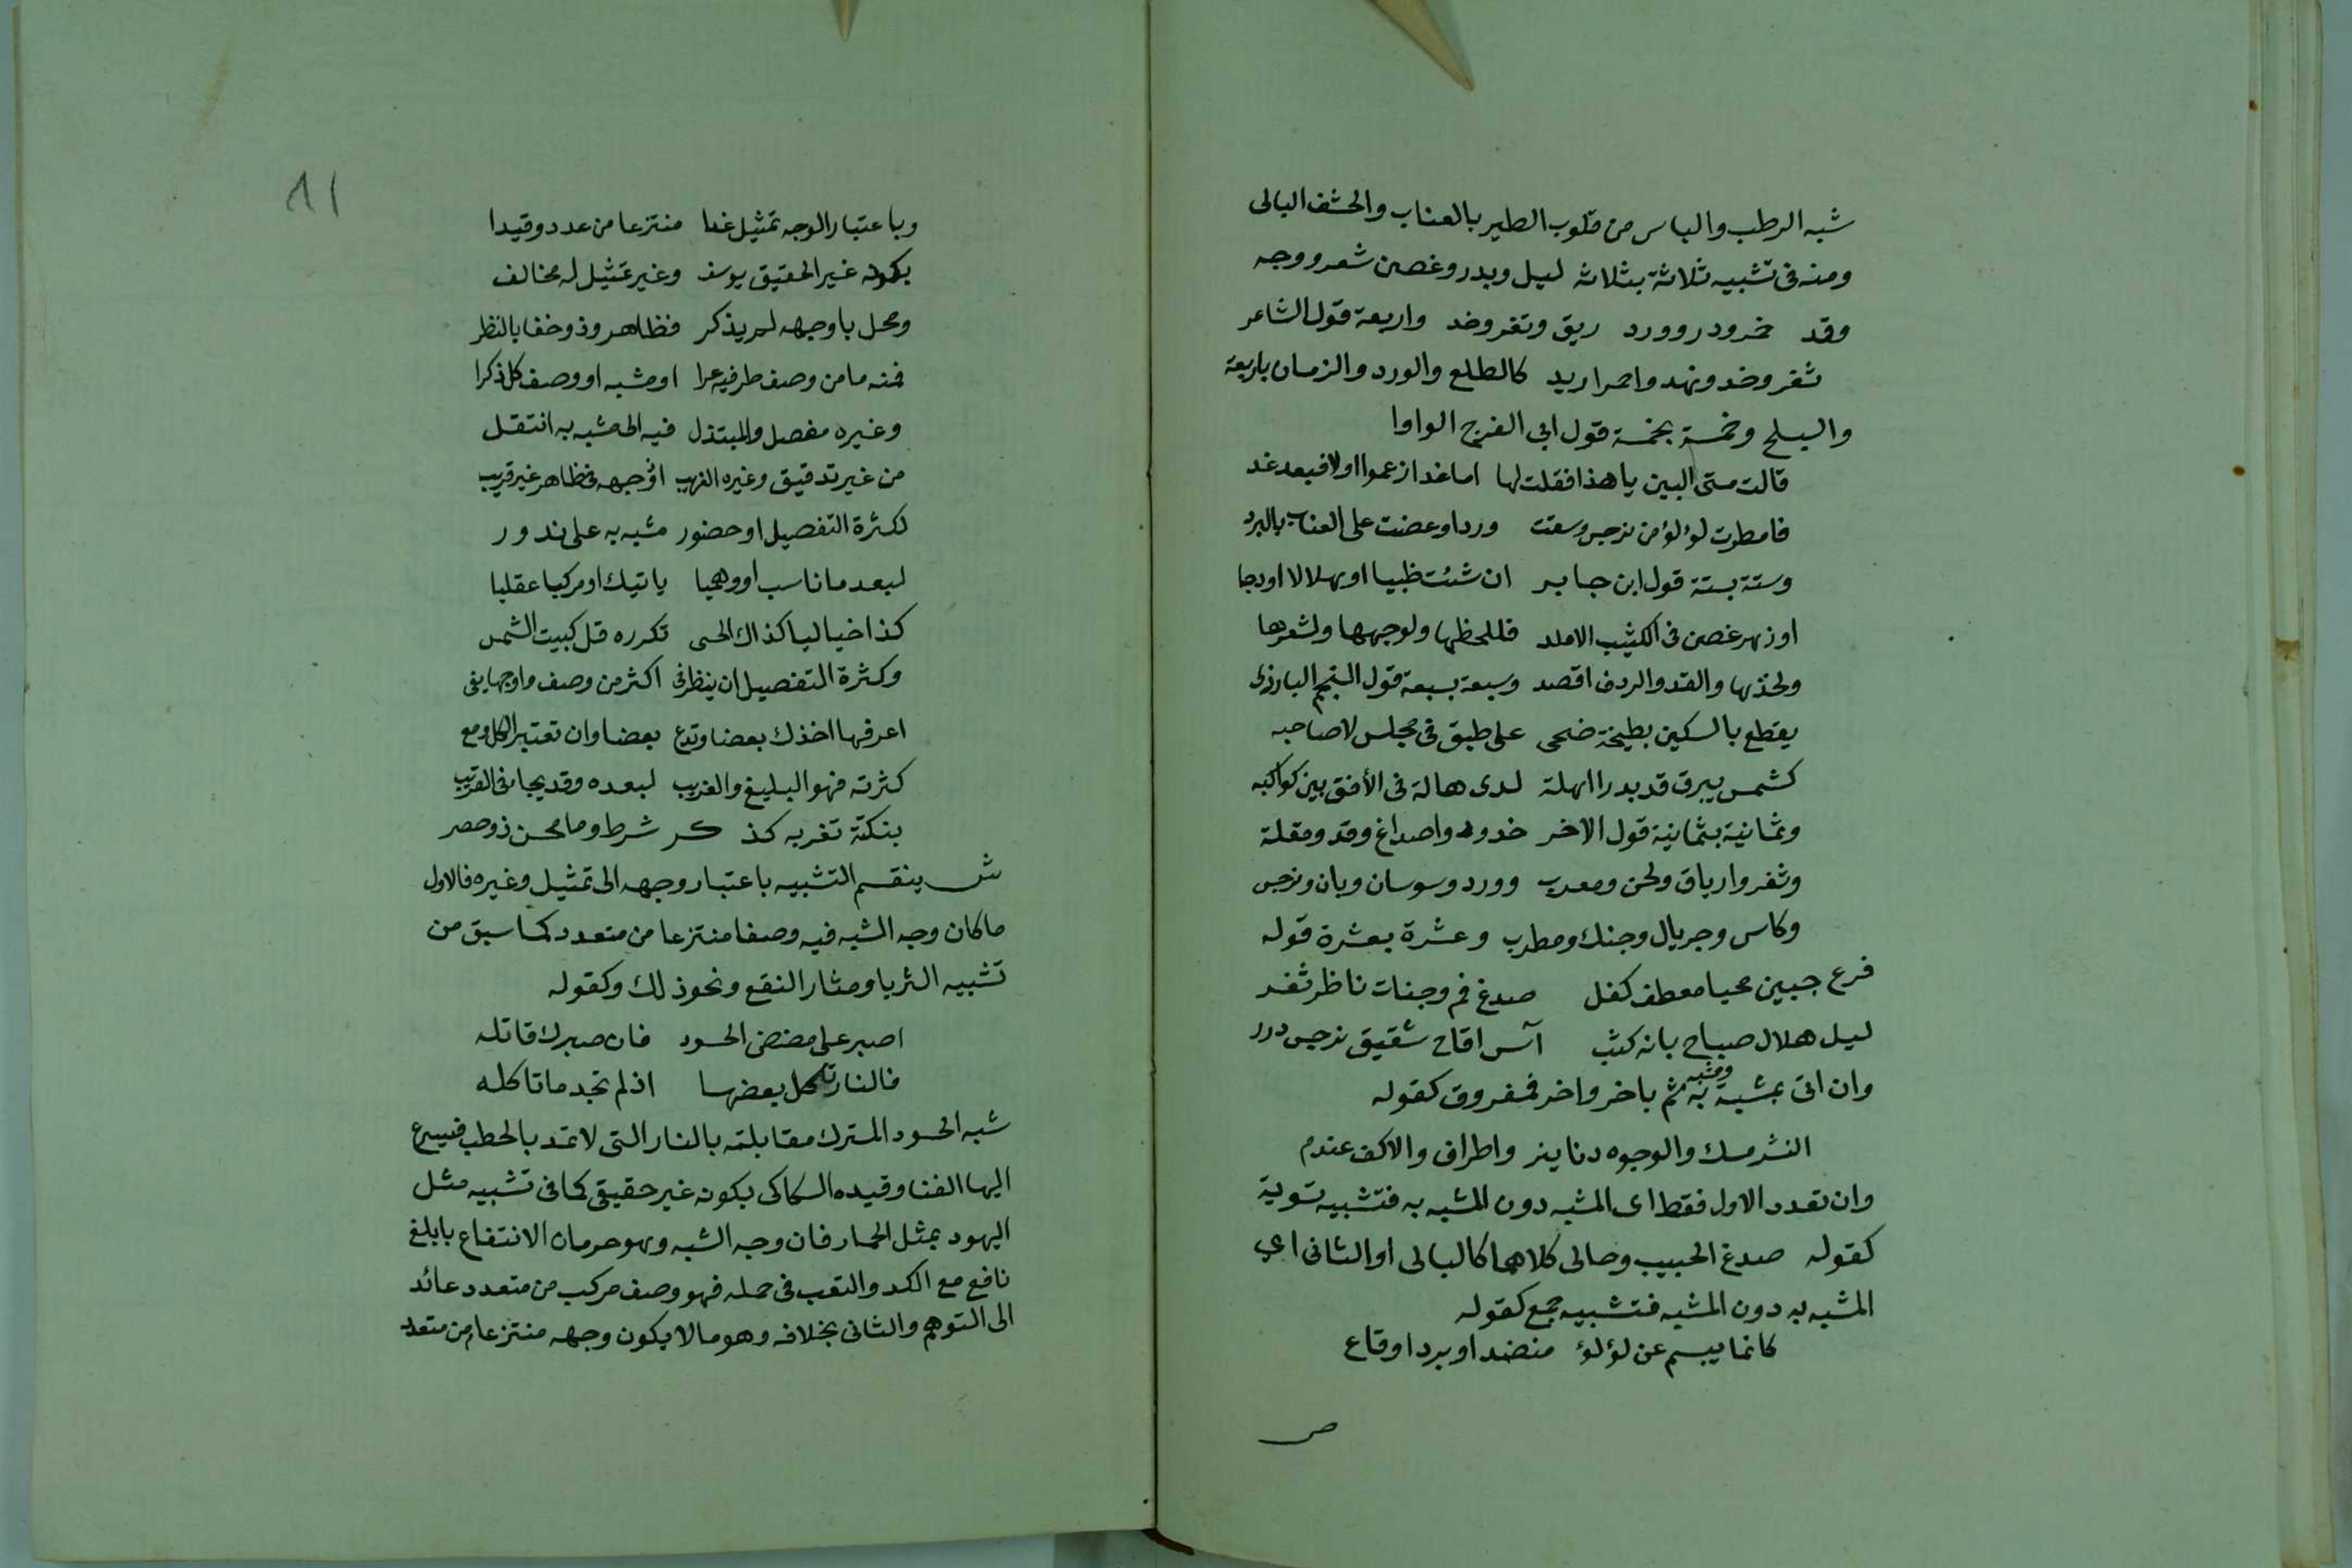 شبه الرطب والياس من قلوب الطير بالعناب والحشف البالى
ومنه فى تشبيه ثلاثة بثلاثه ليل وبدر وغصن شعر ووجه
وقد خمر ودر وورد ريق وثغر وخد واربعة قول الشاعر
ثغر وخد ونهد واحمرار يد كالطلع والورد والرمان باربعة
والبلح وخمسة بخمسة قول ابى الفرج الواوا
قالت متى البين يا هذا فقلت لها اما غدا زعموا اولا فبعد غد
فامطرت لؤلؤ من نرجس وسقت وردا وعضت على العناب بالبرد
وستة بستة قول ابن جابر ان شئت ظبيا او هلالا او دجا
او زهر غصن فى الكثيب الاملد فللحظها ولوجهها ولشعرها
ولخدها والقد والردف اقصد وسبعة بسبعة قول النجم البارزى
يقطع بالسكين بطيخة ضحى على طبق فى مجلس لاصاحبه
كشمس ببرق قد بدرا اهلة لدى هالة فى الأفق بين كواكبه
وثمانية بثمانية قول الاخر خدود واصداغ وقد ومقلة
وثغر وارياق ولحن ومعرب وورد وسوسان وبان ونرجس
وكاس وجريال وجنك ومطرب وعشرة بعشرة قوله
فرع جبين محيا معطف كفل صدغ فم وجنات ناظر ثغر
ليل هلال صباح بانه كثب آس اقاح شقيق نرجس درر
وان اتى بمشبه ومشبه به ثم باخر واخر فمفروق كقوله
النشر مسك والوجوه دنانير واطراف والاكف عندم
وان تعدد الاول فقط اى المشبه دون المشبه به فتشبيه تسوية
كقوله صدغ الحبيب وحالى كلاهما كالبالى او الثانى اعى
المشبه به دون المشبه فتشبيه جمع كقوله
كانما يبسم عن لؤلؤ منضد او برد او قاع
ص
٨١
وباعتبار الوجه تمثيل غدا منتزعا من عدد وقيدا
بكونه غير الحقيقى يوسف وغير تمثيل له مخالف
ومجل با وجهه لم يذكر فظاهر وذو خفا بالنظر
فمنه ما من وصف طرفيه عرا او مشبه او وصف كل ذكرا
وغيره مفصل والمبتذل فيه الى مشبه به انتقل
من غير تدقيق وغيره الغريب اذ وجهه فى ظاهر غير قريب
لكثرة التفصيل او حضور مشبه به على ندور
لبعد ما ناسب او وهميا ياتيك او مركبا عقليا
كذا خياليا كذاك الحسى تكرره قل كبيت الشمس
وكثرة التفصيل ان ينظر فى اكثر من وصف واوجها يفى
اعرفها اخذك بعضا وتدع بعضا وان تعتبر الكل ومع
كثرته فهو البليغ والغريب لبعده وقد يجا فى القريب
بنكتة تغربه كذ كر شرط وما محسن ذو حصر
ش ينقسم التشبيه باعتبار وجهه الى تمثيل وغيره فالاول
ما كان وجه الشبه فيه وصفا منتزعا من متعدد كما سبق من
تشبيه الثريا ومثار النقع ونحو ذلك وكقوله
اصبر على مضض الحسود فان صبرك قاتله
فالنار تاكل بعضها اذ لم تجد ما تاكله
شبه الحسود المترك مقابلته بالنار التى لا تمد بالحطب فيسرع
اليها الفنا وقيده السكاكى بكونه غير حقيقى كما فى تشبيه مثل
اليهود بمثل الحمار فان وجه الشبه وهو حرمان الانتفاع بابلغ
نافع مع الكد والتعب فى حمله فهو وصف مركب من متعدد عائد
الى التوهم والثانى بخلافه وهو ما لا يكون وجهه منتزعا من متعدد